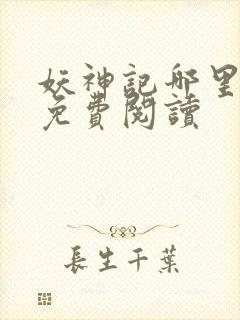 妖神記哪里
免費閱讀
長生千葉